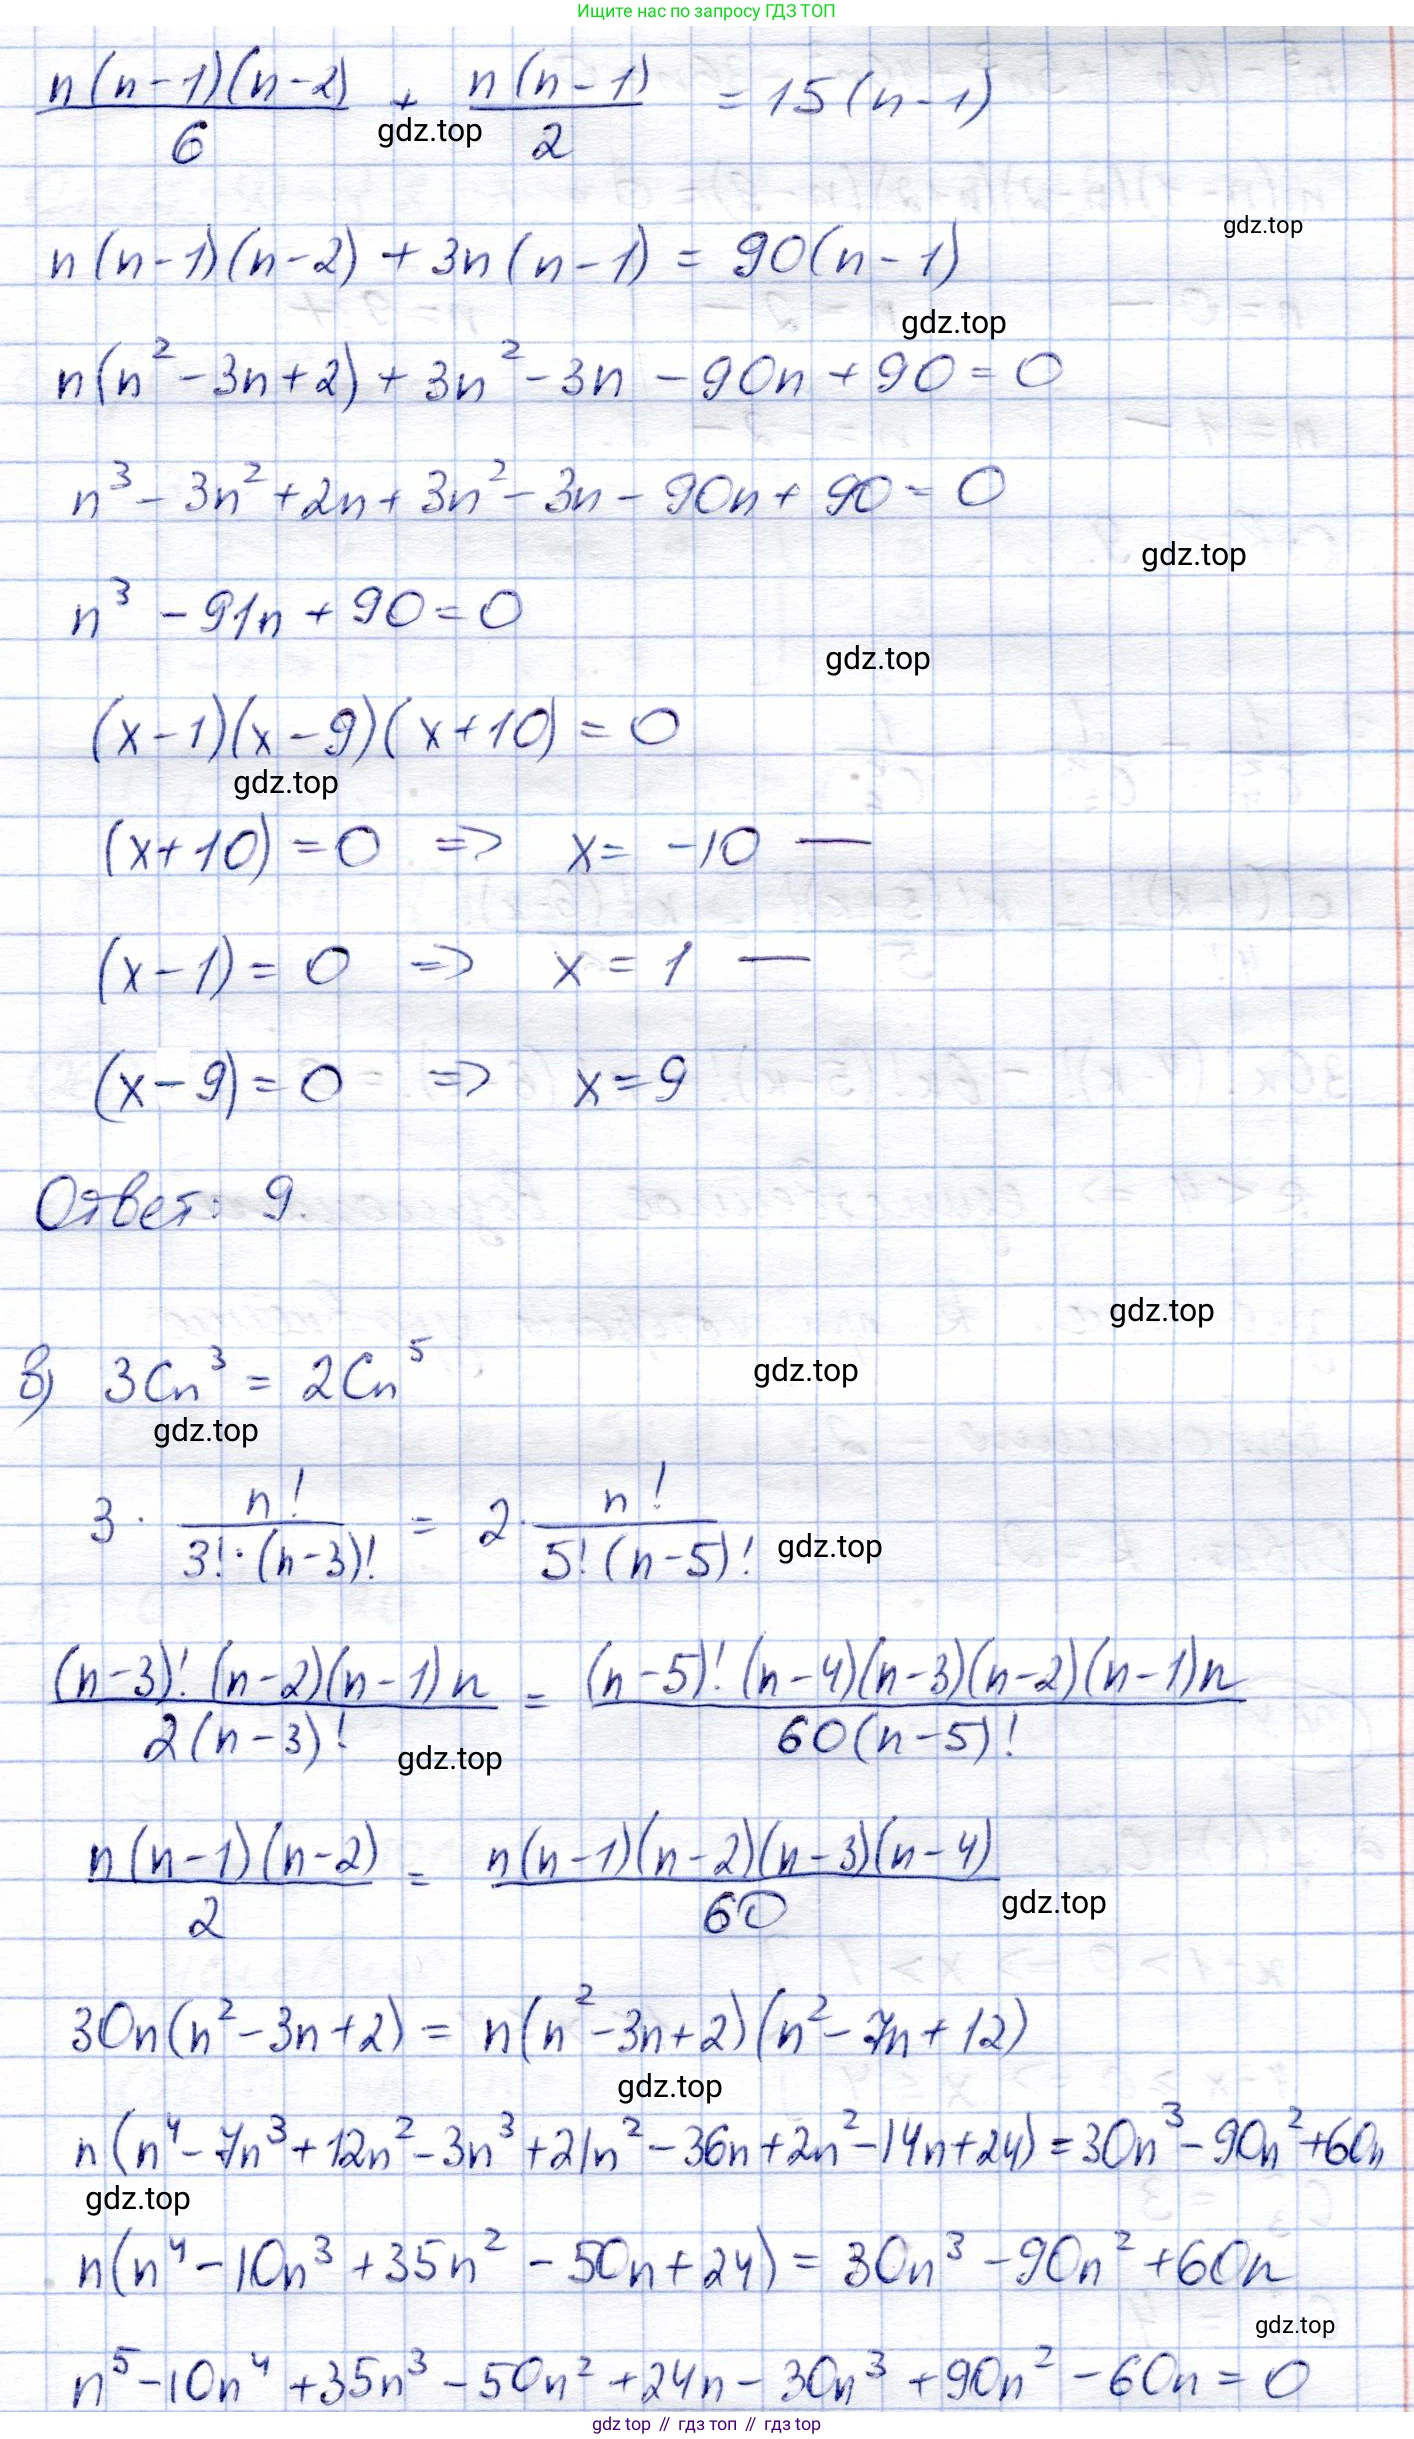 Ищите нас по запросу ГДЗ ТОП
n(n-1)(n-2)/6 + n(n-1)/2 = 15(n-1)
gdz.top
gdz.top
n(n-1)(n-2) + 3n(n-1) = 90(n-1)
gdz.top
n(n²-3n+2) + 3n²-3n - 90n + 90 = 0
n³ - 3n² + 2n + 3n² - 3n - 90n + 90 = 0
gdz.top
n³ - 91n + 90 = 0
gdz.top
(x-1)(x-9)(x+10) = 0
gdz.top
(x+10) = 0 => x = -10 —
(x-1) = 0 => x = 1 —
(x-9) = 0 => x = 9
Ответ: 9.
gdz.top
в) 3Cn³ = 2Cn⁵
gdz.top
gdz.top
3 · n!/(3!·(n-3)!) = 2 · n!/(5!(n-5)!)
gdz.top
(n-3)!(n-2)(n-1)n/(2(n-3)!) = (n-5)!(n-4)(n-3)(n-2)(n-1)n/(60(n-5)!)
gdz.top
n(n-1)(n-2)/2 = n(n-1)(n-2)(n-3)(n-4)/60
gdz.top
30n(n²-3n+2) = n(n²-3n+2)(n²-7n+12)
gdz.top
n(n⁴-7n³+12n²-3n³+21n²-36n+2n²-14n+24) = 30n³-90n²+60n
gdz.top
n(n⁴-10n³+35n²-50n+24) = 30n³-90n²+60n
gdz.top
n⁵-10n⁴+35n³-50n²+24n-30n³+90n²-60n = 0
gdz top // гдз топ // гдз top